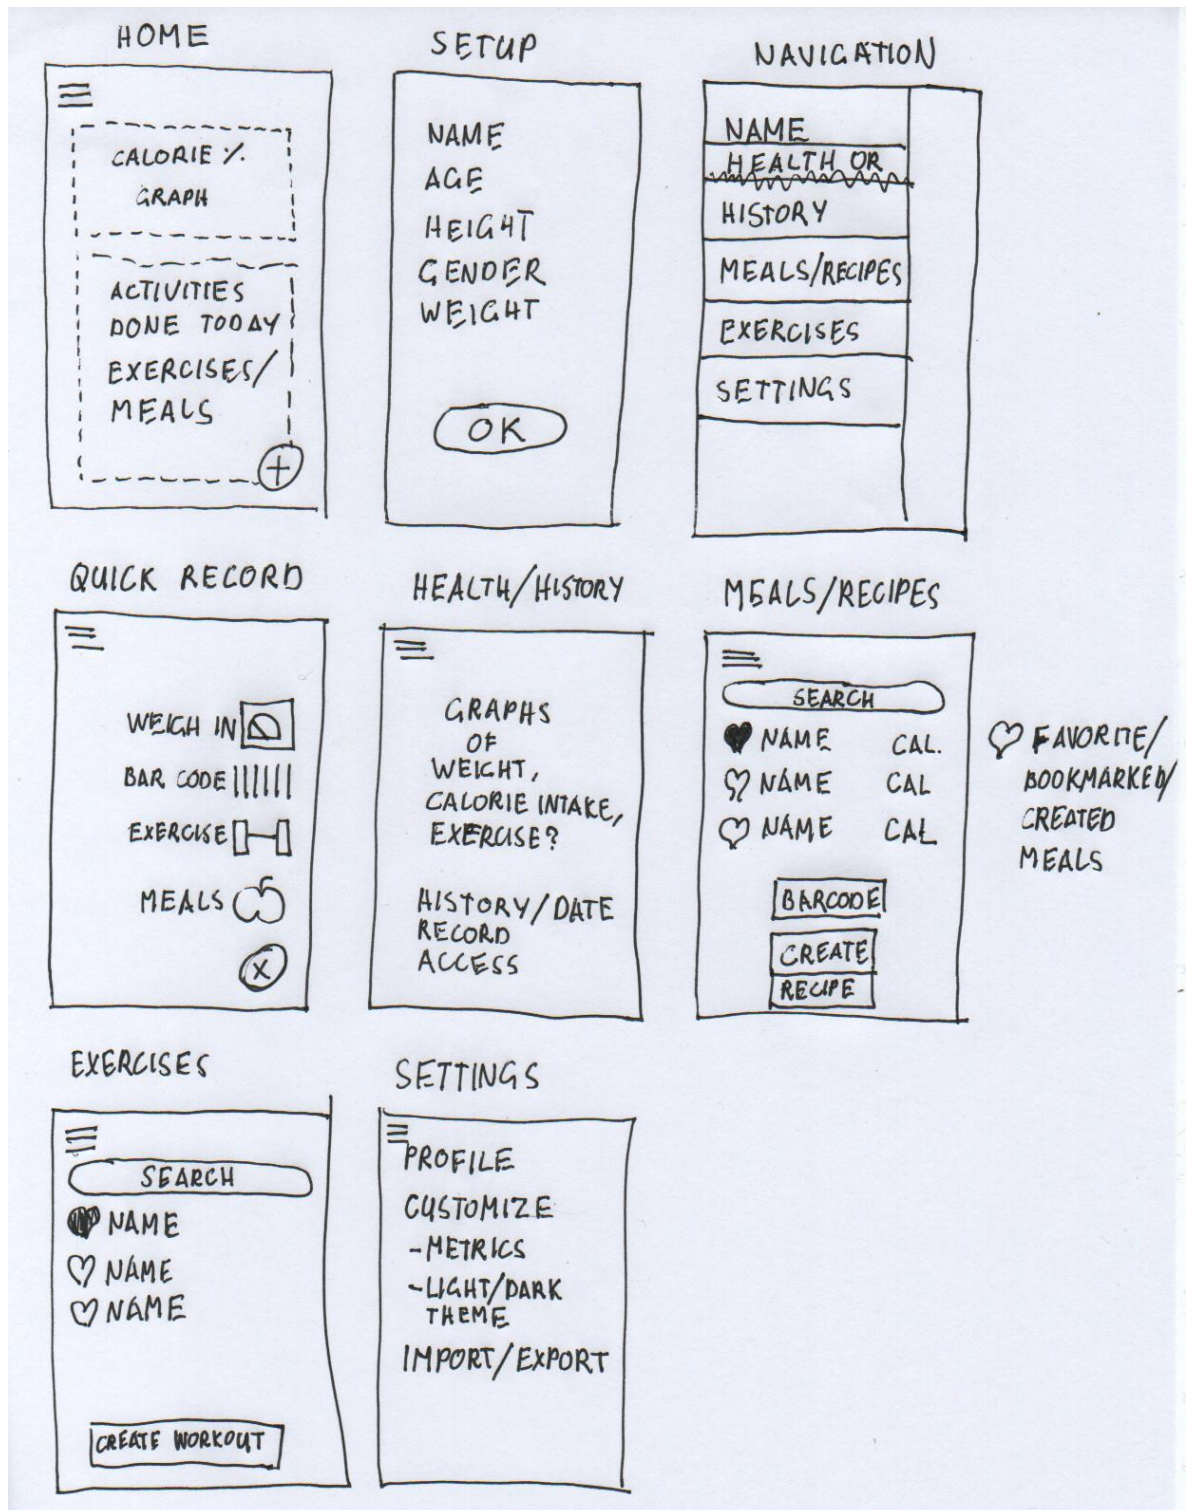 HOME
CALORIE %
GRAPH
ACTIVITIES
DONE TODAY
EXERCISES/
MEALS
+
SETUP
NAME
AGE
HEIGHT
GENDER
WEIGHT
OK
NAVIGATION
NAME
HEALTH OR
HISTORY
MEALS/RECIPES
EXERCISES
SETTINGS
QUICK RECORD
WEIGH IN
BAR CODE
EXERCISE
MEALS
X
HEALTH/HISTORY
GRAPHS
OF
WEIGHT,
CALORIE INTAKE,
EXERCISE?
HISTORY/DATE
RECORD
ACCESS
MEALS/RECIPES
SEARCH
NAME CAL.
NAME CAL
NAME CAL
BARCODE
CREATE
RECIPE
FAVORITE/
BOOKMARKED/
CREATED
MEALS
EXERCISES
SEARCH
NAME
NAME
NAME
CREATE WORKOUT
SETTINGS
PROFILE
CUSTOMIZE
-METRICS
-LIGHT/DARK
THEME
IMPORT/EXPORT